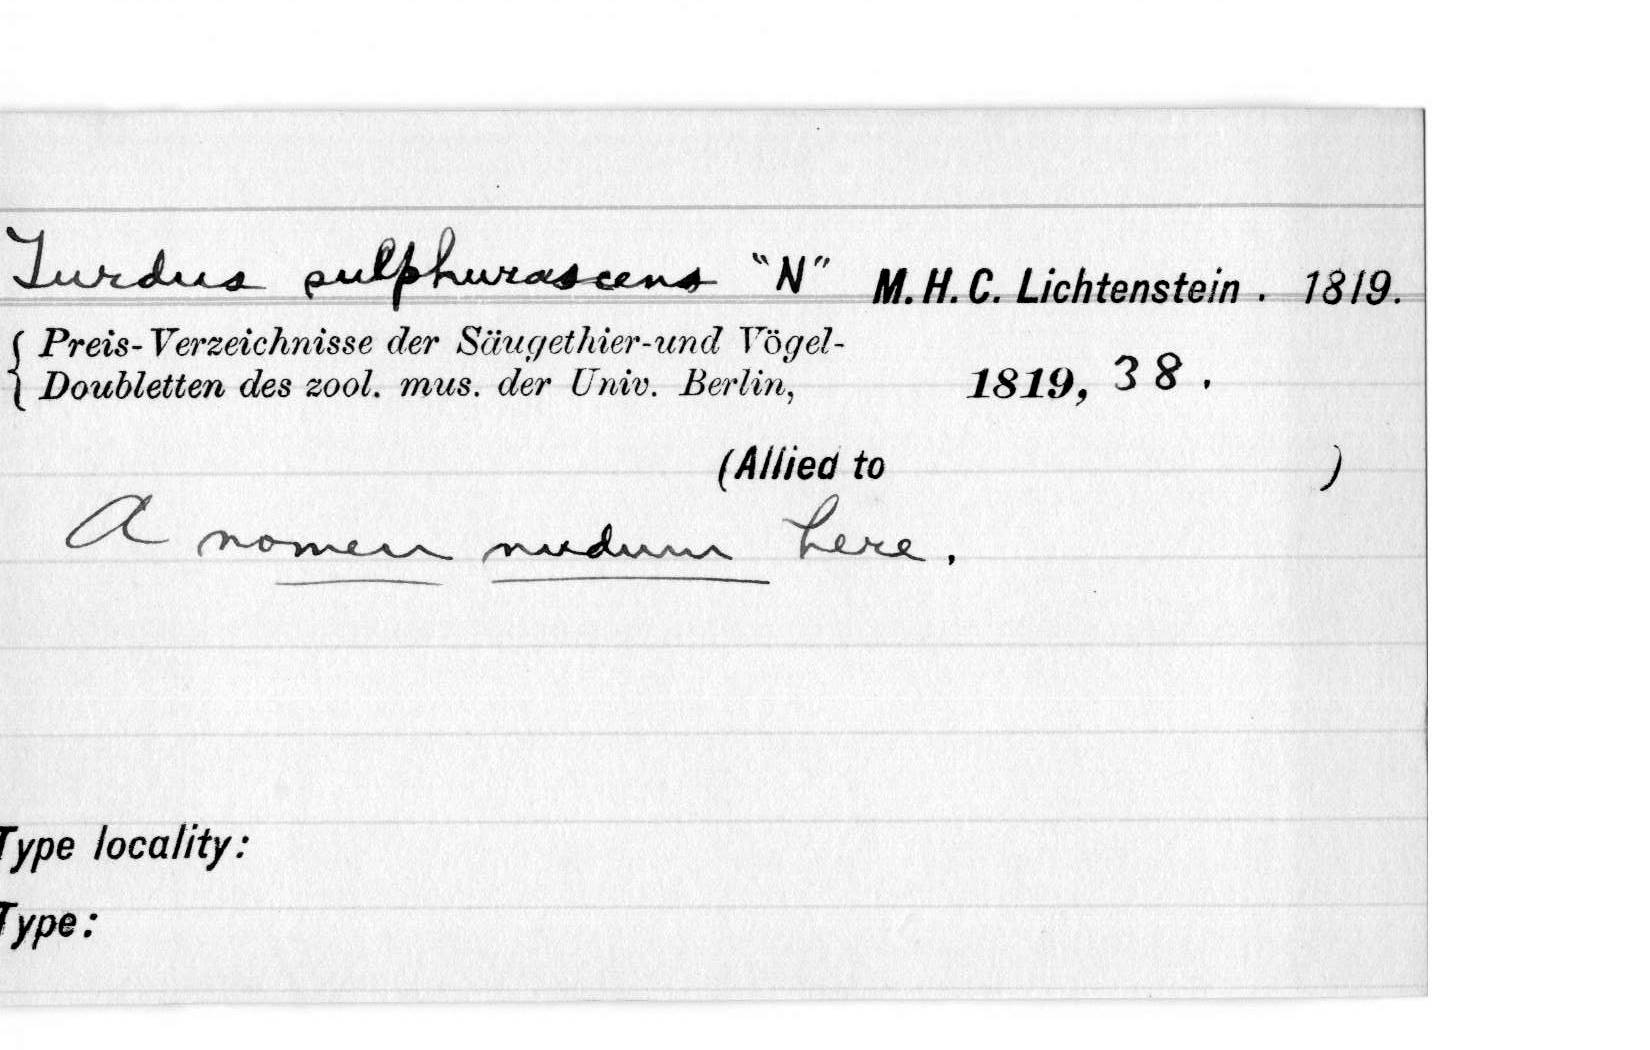 Turdus sulphurascens "N" M. H. C. Lichtenstein . 1819.
{ Preis-Verzeichnisse der Säugethier-und Vögel-
Doubletten des zool. mus. der Univ. Berlin, 1819, 38 .
(Allied to )
A nomen nudum here.
Type locality:
Type: